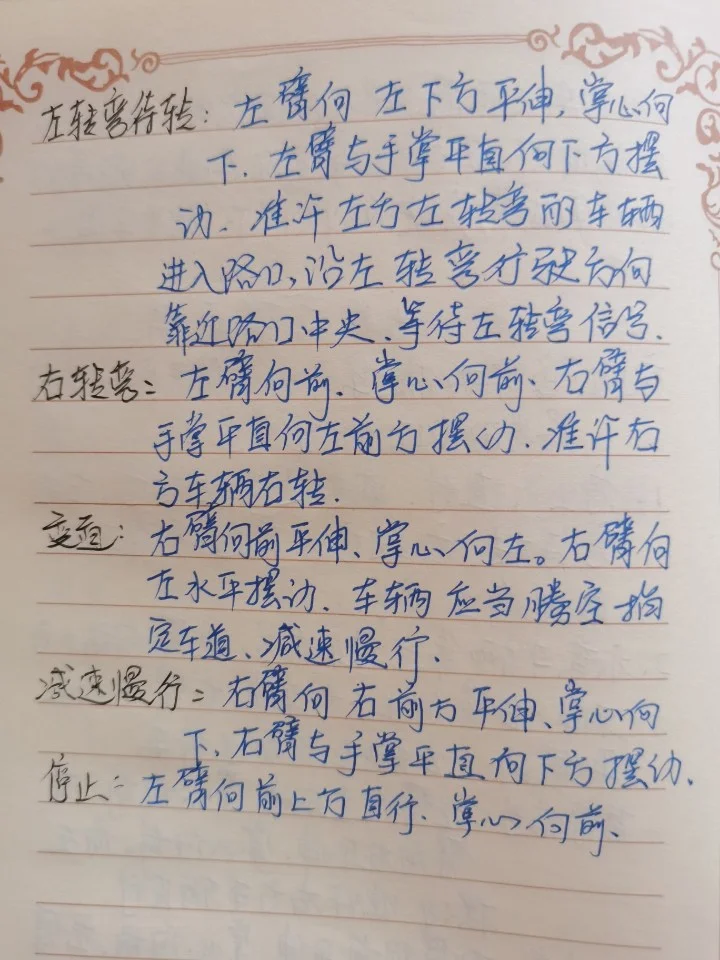 左转弯待转：左臂向左下方平伸，掌心向
下、左臂与手掌平直向下方摆
动、准许左方左转弯的车辆
进入路口，沿左转弯行驶方向
靠近路口中央、等待左转弯信号、
右转弯：左臂向前、掌心向前、右臂与
手掌平直向左前方摆动、准许右
方车辆右转、
变道：右臂向前平伸、掌心向左。右臂向
左水平摆动、车辆应当腾空指
定车道、减速慢行、
减速慢行：右臂向右前方平伸、掌心向
下、右臂与手掌平直向下方摆动、
停止：左臂向前上方直行、掌心向前、